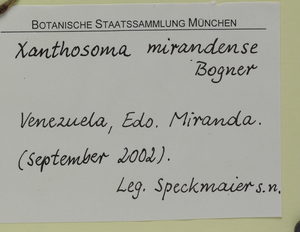 BOTANISCHE STAATSSAMMLUNG MÜNCHEN
Xanthosoma mirandense
Bogner
Venezuela, Edo. Miranda.
(September 2002).
Leg. Speckmaier s.n.